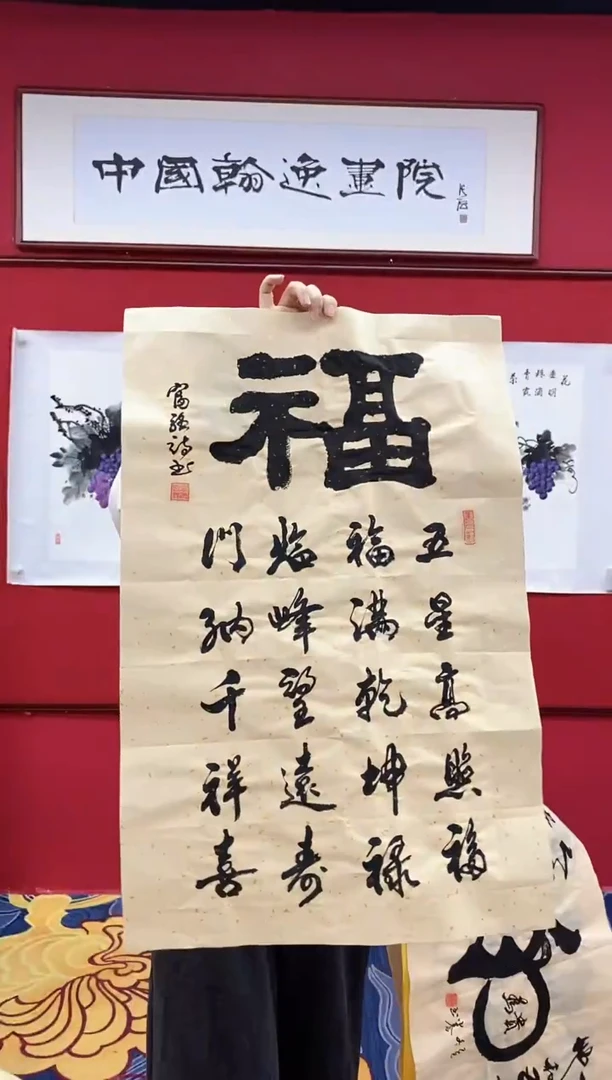 中國翰逸畫院
福
五星高照福
福滿乾坤禄
臨峰望遠寿
門納千祥喜
富强诗书